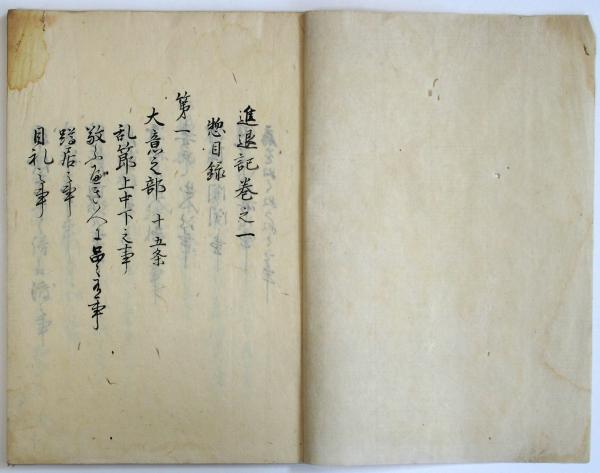 進退記巻之一
惣目録
第一
大意之部 十五条
乱節上中下之事
敬ふべき人に品々有事
蹲居之事
目礼之事